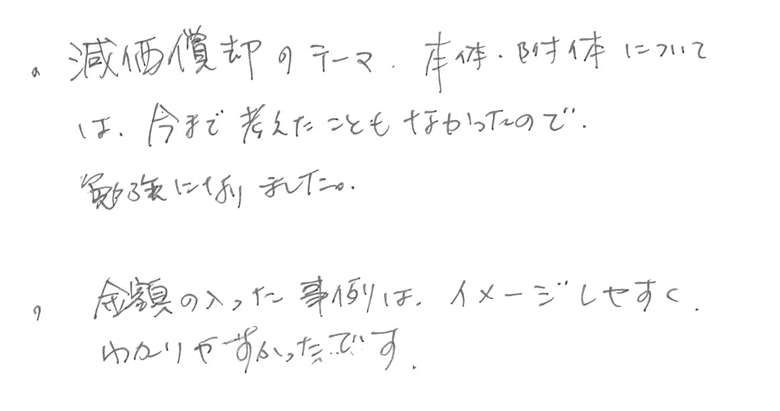 ・減価償却のテーマ、本体・附体について
は、今まで考えたこともなかったので、
勉強になりました。
・金額の入った事例は、イメージしやすく、
わかりやすかったです。